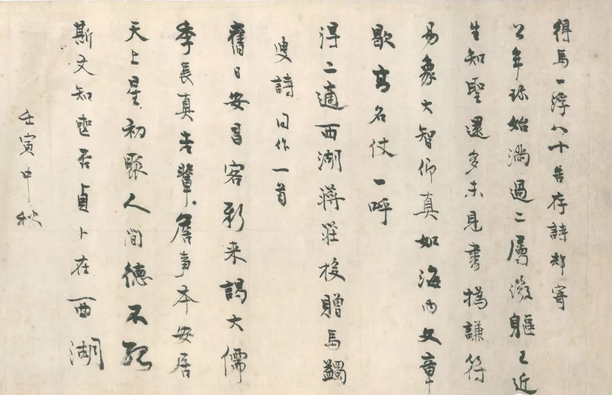 得馬一浮八十告存詩却寄
公年殊始滿過二屬微軀已近
生知聖還多未見書撝謙符
易象大智仰真如海內文章
歇高名仗一呼
得二適西湖蔣莊投贈馬蠲
叟詩同作一首
舊日安昌客新來謁大儒
季長真吾輩詹事本安居
天上星初聚人間德不孤
斯文知喪否貞卜在西湖
壬寅中秋